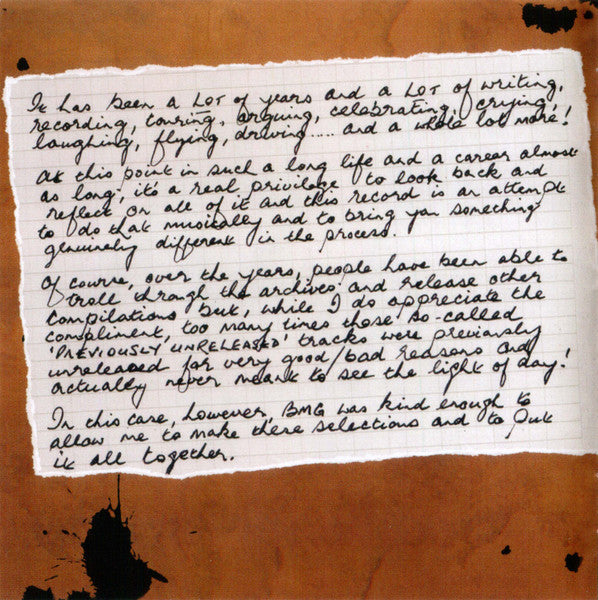 It has been a LOT of years and a LOT of writing,
recording, touring, arguing, celebrating, crying,
laughing, flying, driving..... and a whole lot more!
At this point in such a long life and a career almost
as long, it's a real privilege to look back and
reflect on all of it and this record is an attempt
to do that musically and to bring you something
genuinely different in the process.
Of course, over the years, people have been able to
troll through the archives and release other
compilations but, while I do appreciate the
compliment, too many times those so-called
'PREVIOUSLY UNRELEASED' tracks were previously
unreleased for very good/bad reasons and
actually never meant to see the light of day!
In this case, however, BMG was kind enough to
allow me to make these selections and to put
it all together.